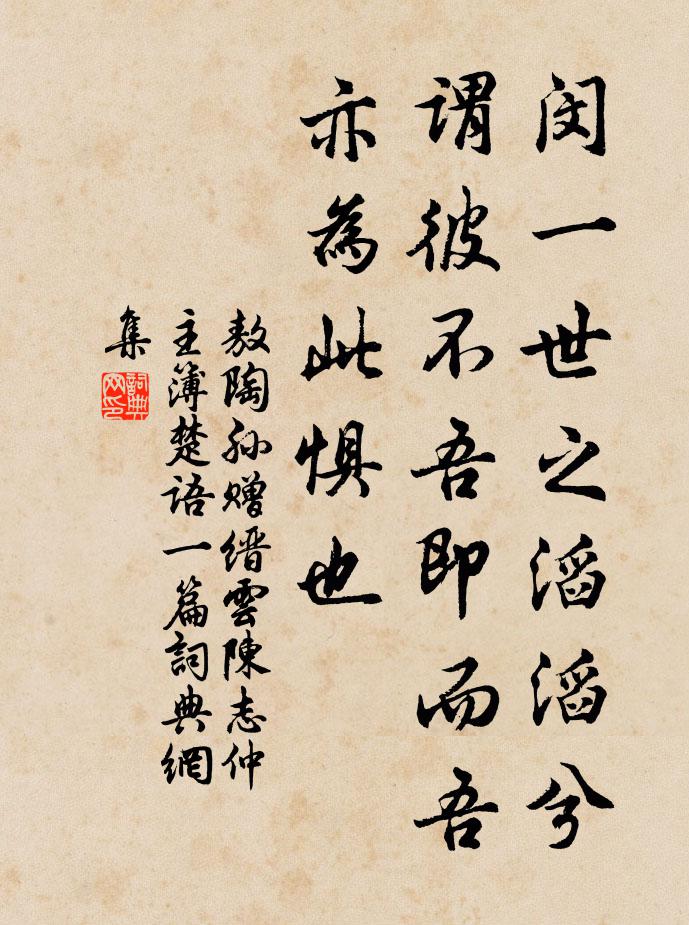 闵一世之滔滔兮
谓彼不吾即而吾
亦為此惧也
敖陶孙赠缙雲陳志仲
主簿楚语一篇詞典網
集
詞典
网印